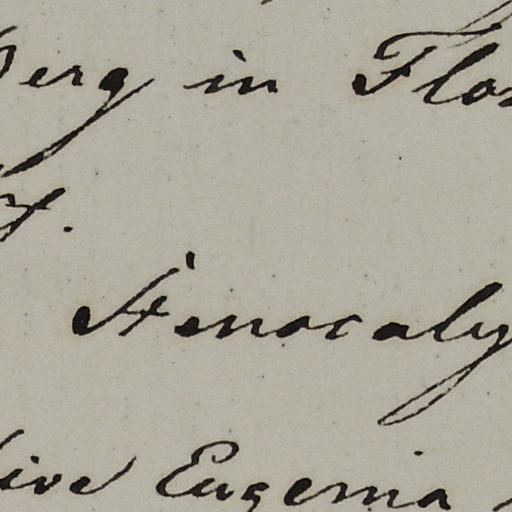 berg in Flor
Stenocaly
sive Eugenia